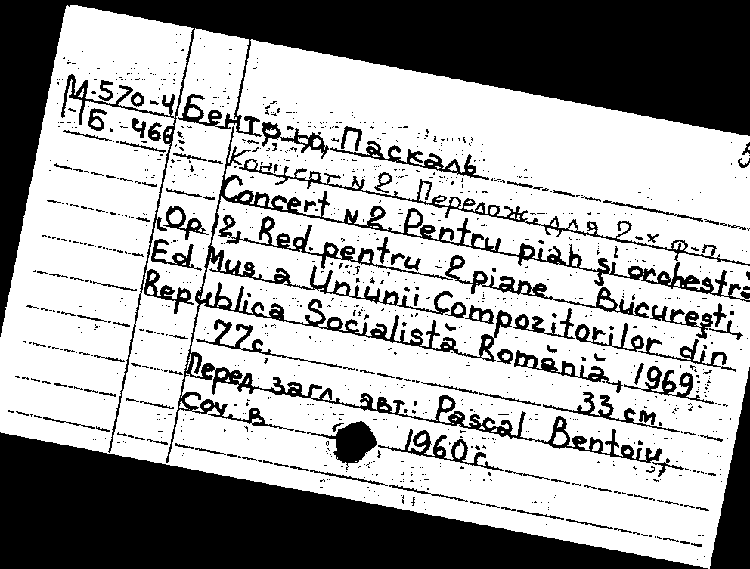 М.570-4
Б. 466
Бентою, Паскаль
Концерт N 2. Перелож. для 2-х ф-п.
Concert N 2. Pentru pian și orchestră
Op. 12, Red. pentru 2 piane. București,
Ed. Mus. a Uniunii Compozitorilor din
Republica Socialistă Română, 1969
77 с. 33 см.
Перед загл. авт.: Pascal Bentoiu,
Соч. в 1960 г.